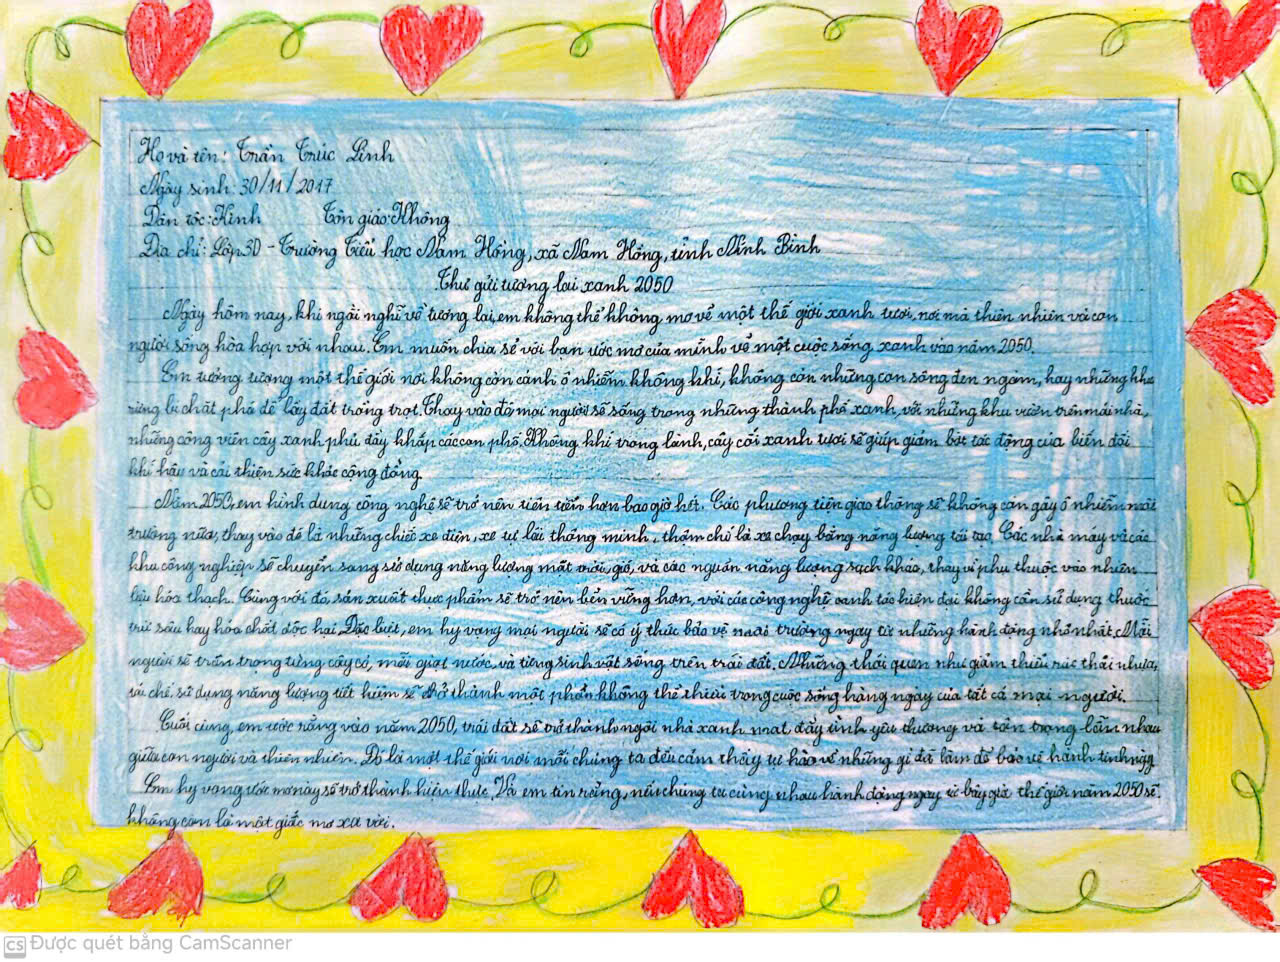 Họ và tên: Trần Trúc Linh
Ngày sinh: 30/11/2017
Dân tộc: Kinh Tôn giáo: Không
Địa chỉ: Lớp 3D - Trường Tiểu học Nam Hồng, xã Nam Hồng, tỉnh Ninh Bình
Thư gửi tương lai xanh 2050
Ngày hôm nay, khi ngồi nghĩ về tương lai, em không thể không mơ về một thế giới xanh tươi, nơi mà thiên nhiên và con
người sống hòa hợp với nhau. Em muốn chia sẻ với bạn ước mơ của mình về một cuộc sống xanh vào năm 2050.
Em tưởng tượng một thế giới nơi không còn cảnh ô nhiễm không khí, không còn những con sông đen ngòm, hay những khu
rừng bị chặt phá để lấy đất trồng trọt. Thay vào đó, mọi người sẽ sống trong những thành phố xanh, với những khu vườn trên mái nhà,
những công viên cây xanh phủ đầy khắp các con phố. Không khí trong lành, cây cối xanh tươi sẽ giúp giảm bớt tác động của biến đổi
khí hậu và cải thiện sức khỏe cộng đồng.
Năm 2050, em hình dung công nghệ sẽ trở nên tiên tiến hơn bao giờ hết. Các phương tiện giao thông sẽ không còn gây ô nhiễm môi
trường nữa, thay vào đó là những chiếc xe điện, xe tự lái thông minh, thậm chí là xe chạy bằng năng lượng tái tạo. Các nhà máy và các
khu công nghiệp sẽ chuyển sang sử dụng năng lượng mặt trời, gió, và các nguồn năng lượng sạch khác, thay vì phụ thuộc vào nhiên
liệu hóa thạch. Cùng với đó, sản xuất thực phẩm sẽ trở nên bền vững hơn, với các công nghệ canh tác hiện đại không cần sử dụng thuốc
trừ sâu hay hóa chất độc hại. Đặc biệt, em hy vọng mọi người sẽ có ý thức bảo vệ môi trường ngay từ những hành động nhỏ nhất. Mỗi
người sẽ trân trọng từng cây cỏ, mỗi giọt nước, và từng sinh vật sống trên trái đất. Những thói quen như giảm thiểu rác thải nhựa,
tái chế, sử dụng năng lượng tiết kiệm sẽ trở thành một phần không thể thiếu trong cuộc sống hàng ngày của tất cả mọi người.
Cuối cùng, em ước rằng vào năm 2050, trái đất sẽ trở thành ngôi nhà xanh mát, đầy tình yêu thương và tôn trọng lẫn nhau
giữa con người và thiên nhiên. Đó là một thế giới nơi mỗi chúng ta đều cảm thấy tự hào về những gì đã làm để bảo vệ hành tinh này.
Em hy vọng ước mơ này sẽ trở thành hiện thực. Và em tin rằng, nếu chúng ta cùng nhau hành động ngay từ bây giờ thế giới năm 2050 sẽ
không còn là một giấc mơ xa vời.
CS Được quét bằng CamScanner